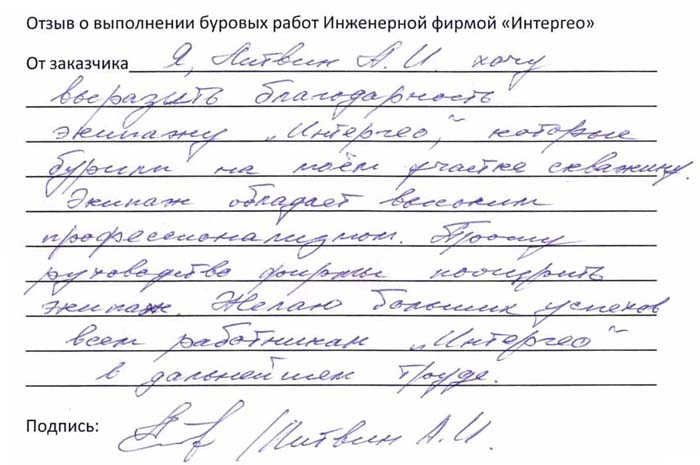 Отзыв о выполнении буровых работ Инженерной фирмой «Интергео»
От заказчика Я, Литвин А. И. хочу
выразить благодарность
экипажу „Интергео“, которые
бурили на моём участке скважину.
Экипаж обладает высоким
профессионализмом. Прошу
руководство фирмы поощрить
экипаж. Желаю больших успехов
всем работникам „Интергео“
в дальнейшем труде.
Подпись: /Литвин А. И.